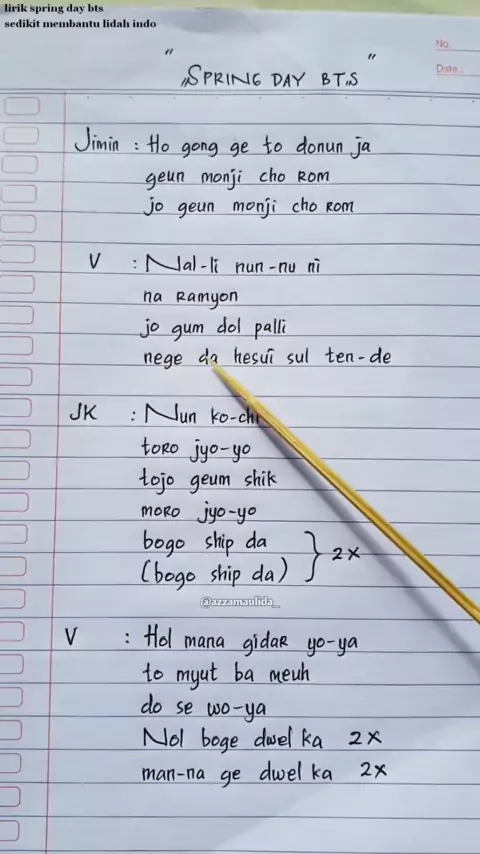 lirik spring day bts
sedikit membantu lidah indo
No:
Date:
"SPRING DAY BTS"
Jimin : Ho gong ge to donun ja
geun monji cho Rom
jo geun monji cho Rom
V : Nal-li nun-nu ni
na Ramyon
jo gum dol palli
nege da hesui sul ten-de
JK : Nun ko-chi
toRo jyo-yo
tojo geum shik
moRo jyo-yo
bogo ship da
(bogo ship da) } 2x
@azzamaulida_
V : Hol mana gidaR yo-ya
to myut ba meuh
do se wo-ya
Nol boge dwel ka 2x
man-na ge dwel ka 2x